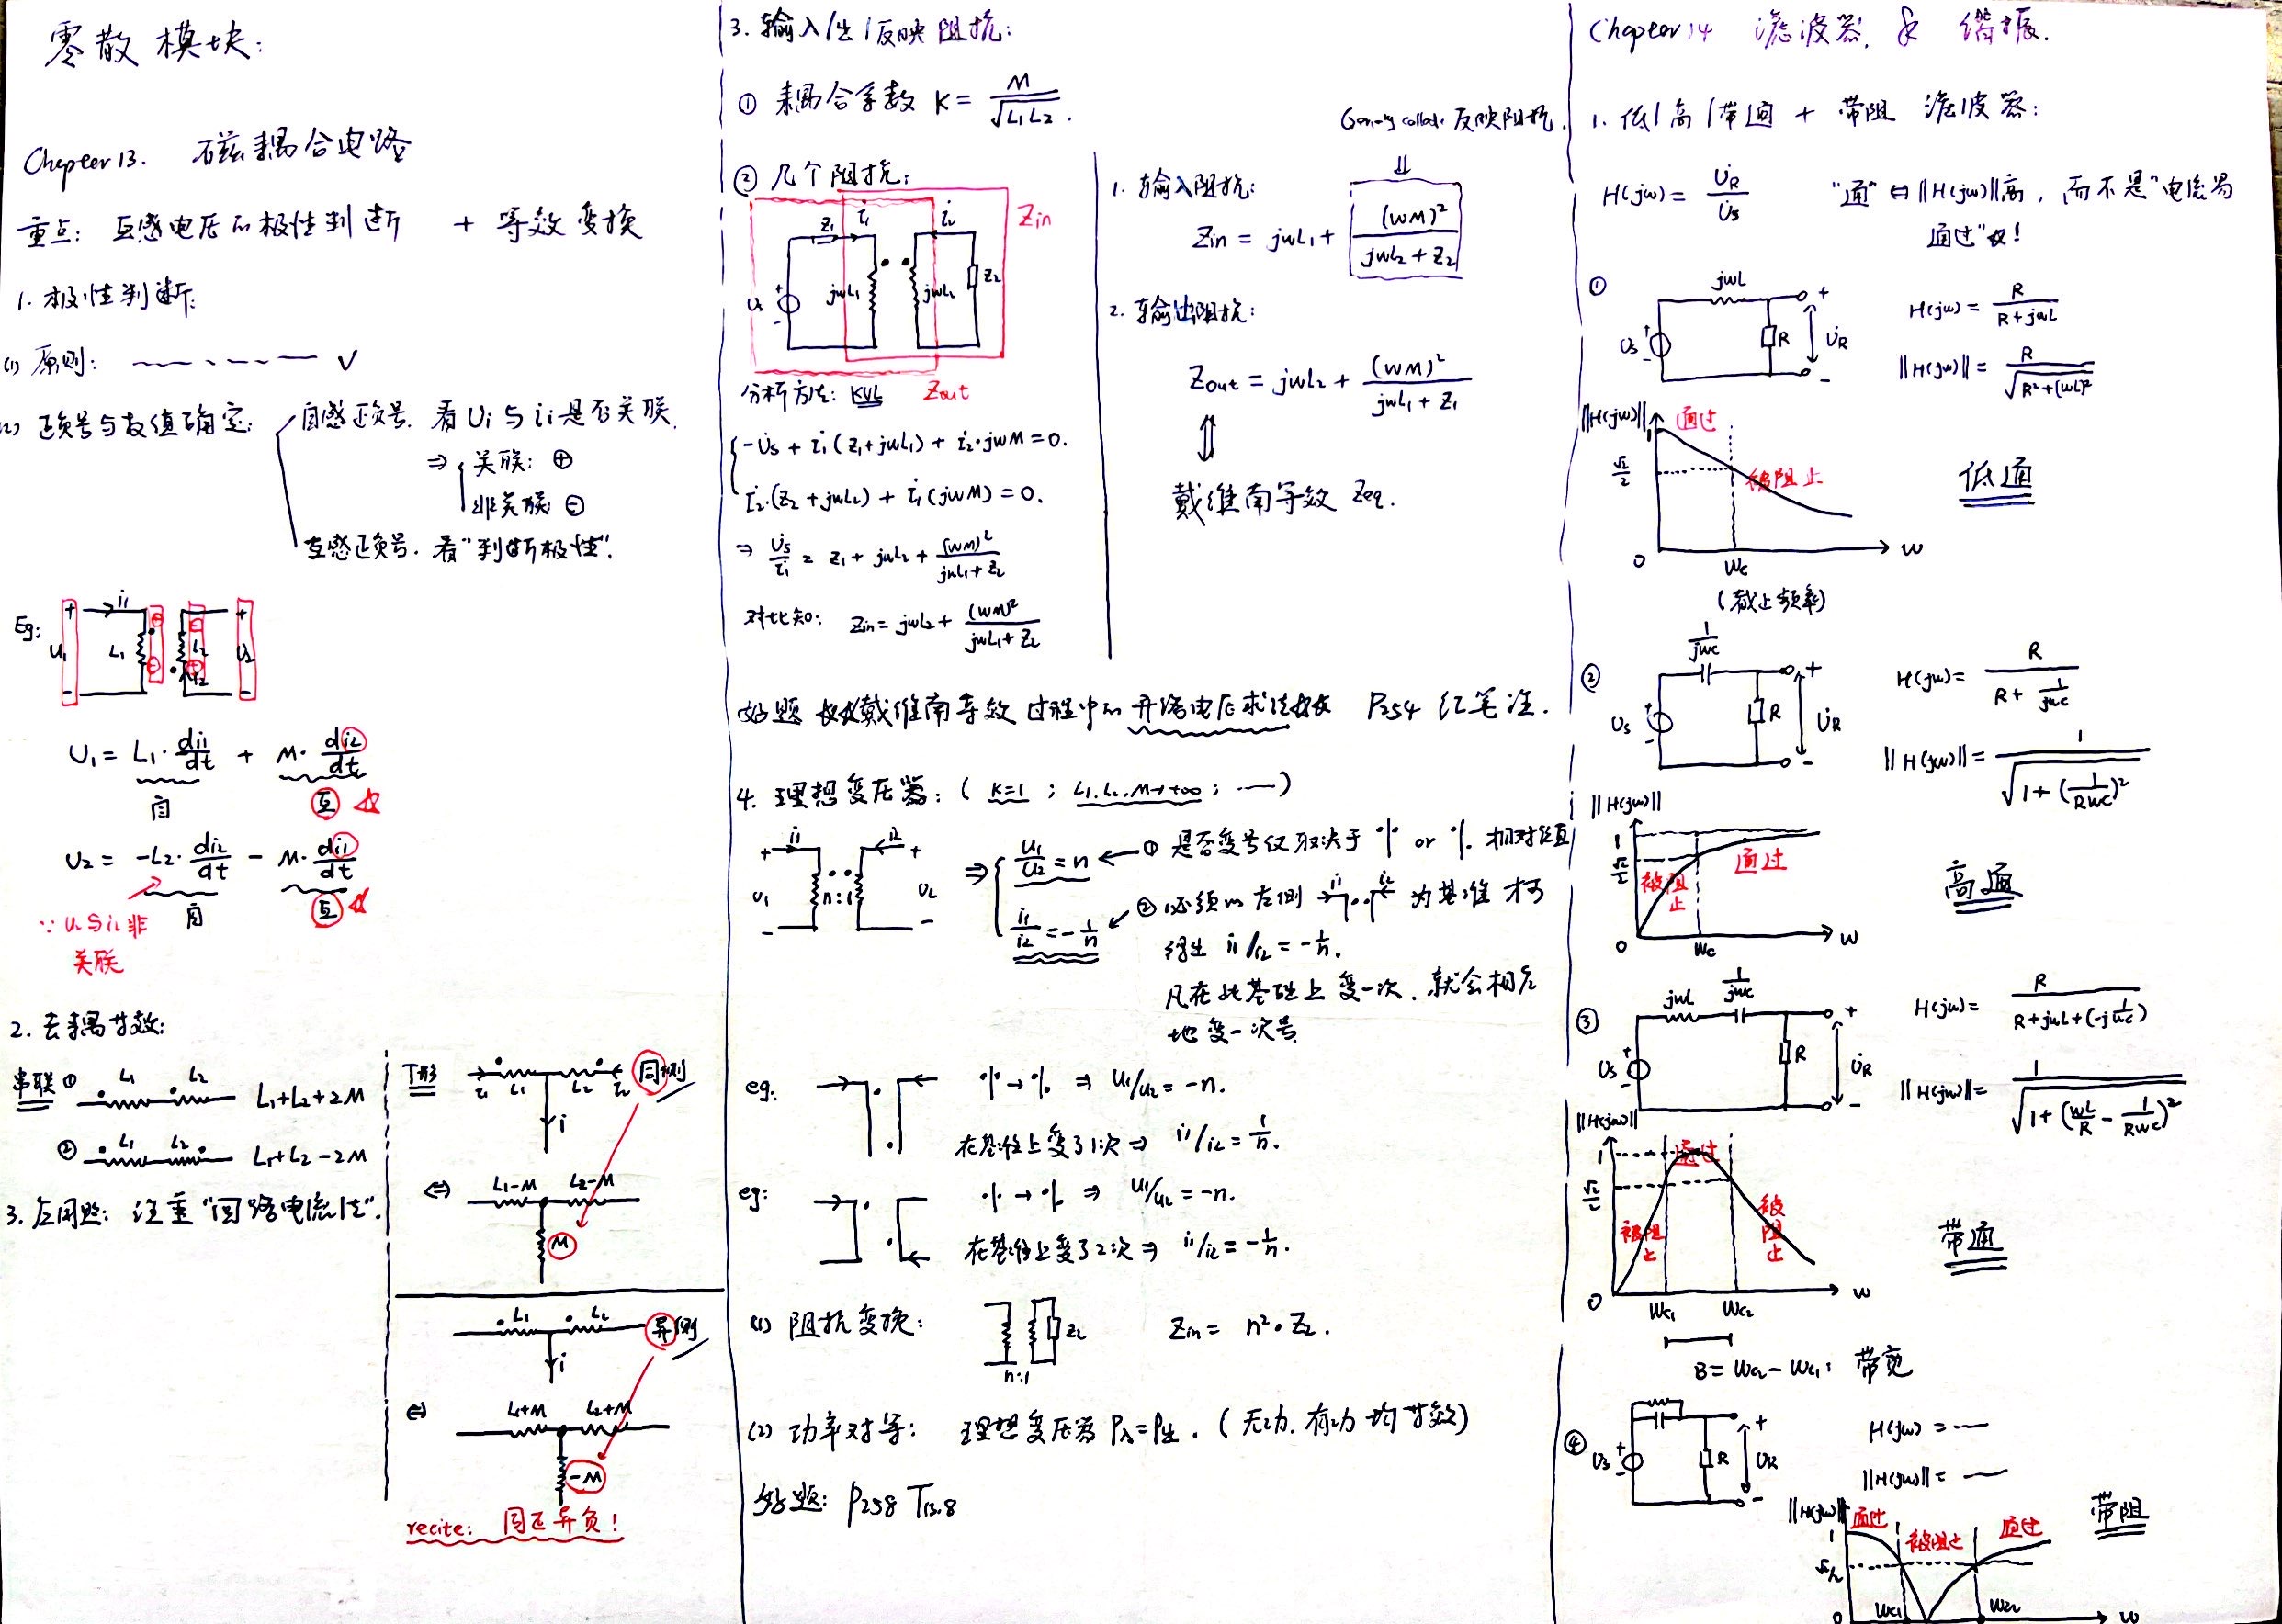 零散模块:
Chapter 13. 磁耦合电路
重点: 互感电压的极性判断 + 等效变换
1. 极性判断:
(1) 原则: —— ~ - ~ — √
(2) 正负号与数值确定: 自感正负号. 看 Ui 与 ii 是否关联.
⇒ { 关联: ⊕
非关联 ⊖
互感正负号. 看"判断极性".
Eg: + U1 - i1 L1 L2 i2 + U2 -
U1 = L1·di1/dt + M·di2/dt
自 互
U2 = -L2·di2/dt - M·di1/dt
自 互
∵ U2与i2非
关联
2. 去耦等效:
串联 ① L1 L2 L1+L2+2M
② L1 L2 L1+L2-2M
3. 应用题: 注重"回路电流法".
T形 i1 L1 L2 i2 同侧
i
⇔ L1-M L2-M
M
L1 L2 异侧
i
⇔ L1+M L2+M
-M
recite: 同正异负!
3. 输入/出/反映阻抗:
① 耦合系数 K = M/√L1L2.
② 几个阻抗:
Z1 İ1 İ2 Zin
Us + - jwL1 jwL2 Z2
分析方法: KVL Zout
{ -U̇s + İ1(Z1+jwL1) + İ2·jwM = 0.
İ2·(Z2+jwL2) + İ1(jwM) = 0.
⇒ U̇s/İ1 = Z1 + jwL2 + (wM)²/(jwL1+Z2)
对比知: Zin = jwL2 + (wM)²/(jwL1+Z2)
反映阻抗.
⇓
1. 输入阻抗:
Zin = jwL1 + (wM)²/(jwL2+Z2)
2. 输出阻抗:
Zout = jwL2 + (wM)²/(jwL1+Z1)
⇕
戴维南等效 Zeq.
好题 戴维南等效过程中的开路电压求法 P254 红笔注.
4. 理想变压器: ( K=1 ; L1.L2.M→+∞ ; — )
+ i1 i2 +
U1 n:1 U2
- -
⇒ { U1/U2 = n ← ① 是否变号仅取决于 or 相对位置
i1/i2 = -1/n ← ② 必须以左侧 i1 i2 为基准 才可
得出 i1/i2 = -1/n.
凡在此基础上变一次. 就会相应
地变一次号.
eg. → ⇒ U1/U2 = -n.
在基准上变了1次 ⇒ i1/i2 = 1/n.
eg: → ⇒ U1/U2 = -n.
在基准上变了2次 ⇒ i1/i2 = -1/n.
(1) 阻抗变换: n:1 Z2 Zin = n²·Z2.
(2) 功率对等: 理想变压器 P入=P出. (无功. 有功均等效)
好题: P258 T13.8
Chapter 14 滤波器 & 谐振.
1. 低/高/带通 + 带阻 滤波器:
H(jw) = U̇R/U̇s "通" ⇔ ||H(jw)||高, 而不是"电流易
通过"!
① jwL + Us + - R U̇R - H(jw) = R/(R+jwL)
||H(jw)|| = R/√(R²+(wL)²)
||H(jw)|| 1 √2/2 通过 被阻止 0 wc w 低通
(截止频率)
② 1/jwc + Us + - R U̇R - H(jw) = R/(R+1/jwc)
||H(jw)|| = 1/√(1+(1/Rwc)²)
||H(jw)|| 1 √2/2 被阻止 通过 0 wc w 高通
③ jwL 1/jwc + Us + - R U̇R - H(jw) = R/(R+jwL+(-j1/wc))
||H(jw)|| = 1/√(1+(wL/R-1/Rwc)²)
||H(jw)|| 1 √2/2 被阻止 通过 被阻止 0 wc1 wc2 w 带通
B = wc2-wc1: 带宽
④ Us + - R + U̇R - H(jw) = —
||H(jw)|| = —
||H(jw)|| 1 √2/2 通过 被阻止 通过 0 wc1 wc2 w 带阻